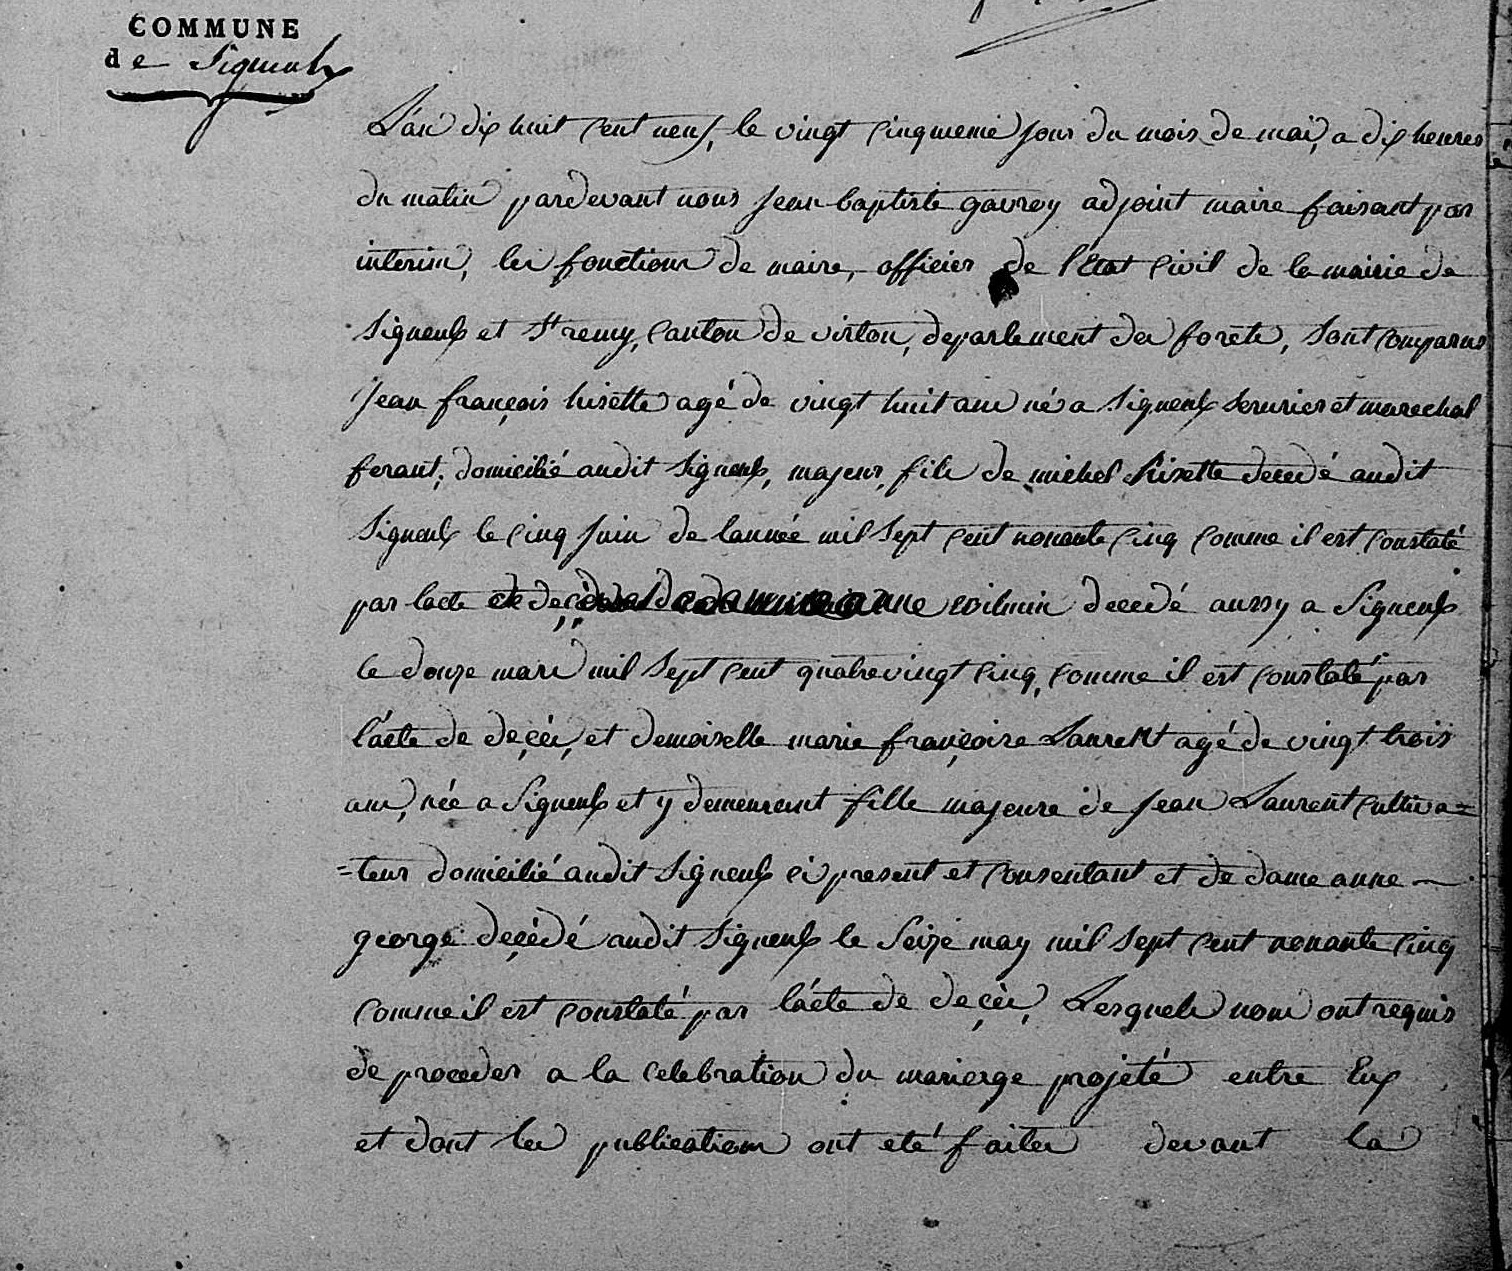 COMMUNE
de Signeulx
L'an dix huit cent neuf, le vingt cinquieme jour du mois de mai, a dix heures
du matin pardevant nous jean baptiste gavroy adjoint maire faisant par
interim, les fonctions de maire, officier de l'état civil de la mairie de
Signeulx et St remy, canton de virton, departement des forets, sont comparus
Jean françois hisette agé de vingt huit ans né a Signeulx serurier et marechal
ferant, domicilié audit Signeulx, majeur, fils de michel hisette decedé audit
Signeulx le cinq juin de lannée mil sept cent nonante cinq comme il est constaté
par lacte de deçès et de anne wilmin decedé aussy a Signeulx
le douze mars mil sept cent quatrevingt cinq, comme il est constaté par
l'acte de deçès, et demoiselle marie françoise Laurent agé de vingt trois
ans, née a Signeulx et y demeurant fille majeure de jean Laurent cultiva=
=teur domicilié audit Signeulx ci present et consentant et de dame anne
george deçèdé audit Signeulx le Seize may mil sept cent nonante cinq
comme il est constaté par l'acte de deçès, Lesquels nous ont requis
de proceder a la celebration du marierge projeté entre Eux
et dont les publications ont eté faites devant la